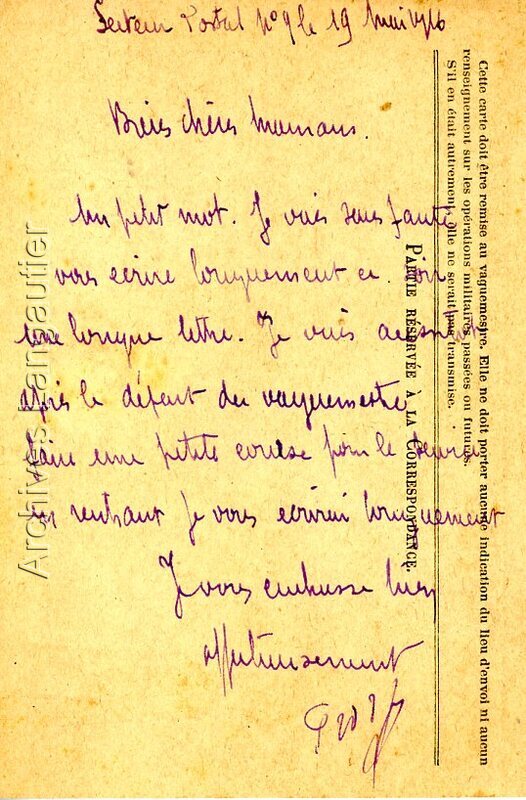 Secteur Postal n° 9 le 19 mai 1916
Bien chères mamans.
Un petit mot. Je vais sans faute
vous écrire longuement ce soir
une longue lettre. Je vais aussitôt
après le départ du vaguemestre
faire une petite course pour le
En rentrant je vous écrirai longuement
Je vous embrasse bien
affectueusement
Cette carte doit être remise au vaguemestre. Elle ne doit porter aucune indication du lieu d'envoi ni aucun
renseignement sur les opérations militaires passées ou futures.
S'il en était autrement, elle ne serait pas transmise.
PARTIE RÉSERVÉE À LA CORRESPONDANCE.
Archives Langautier